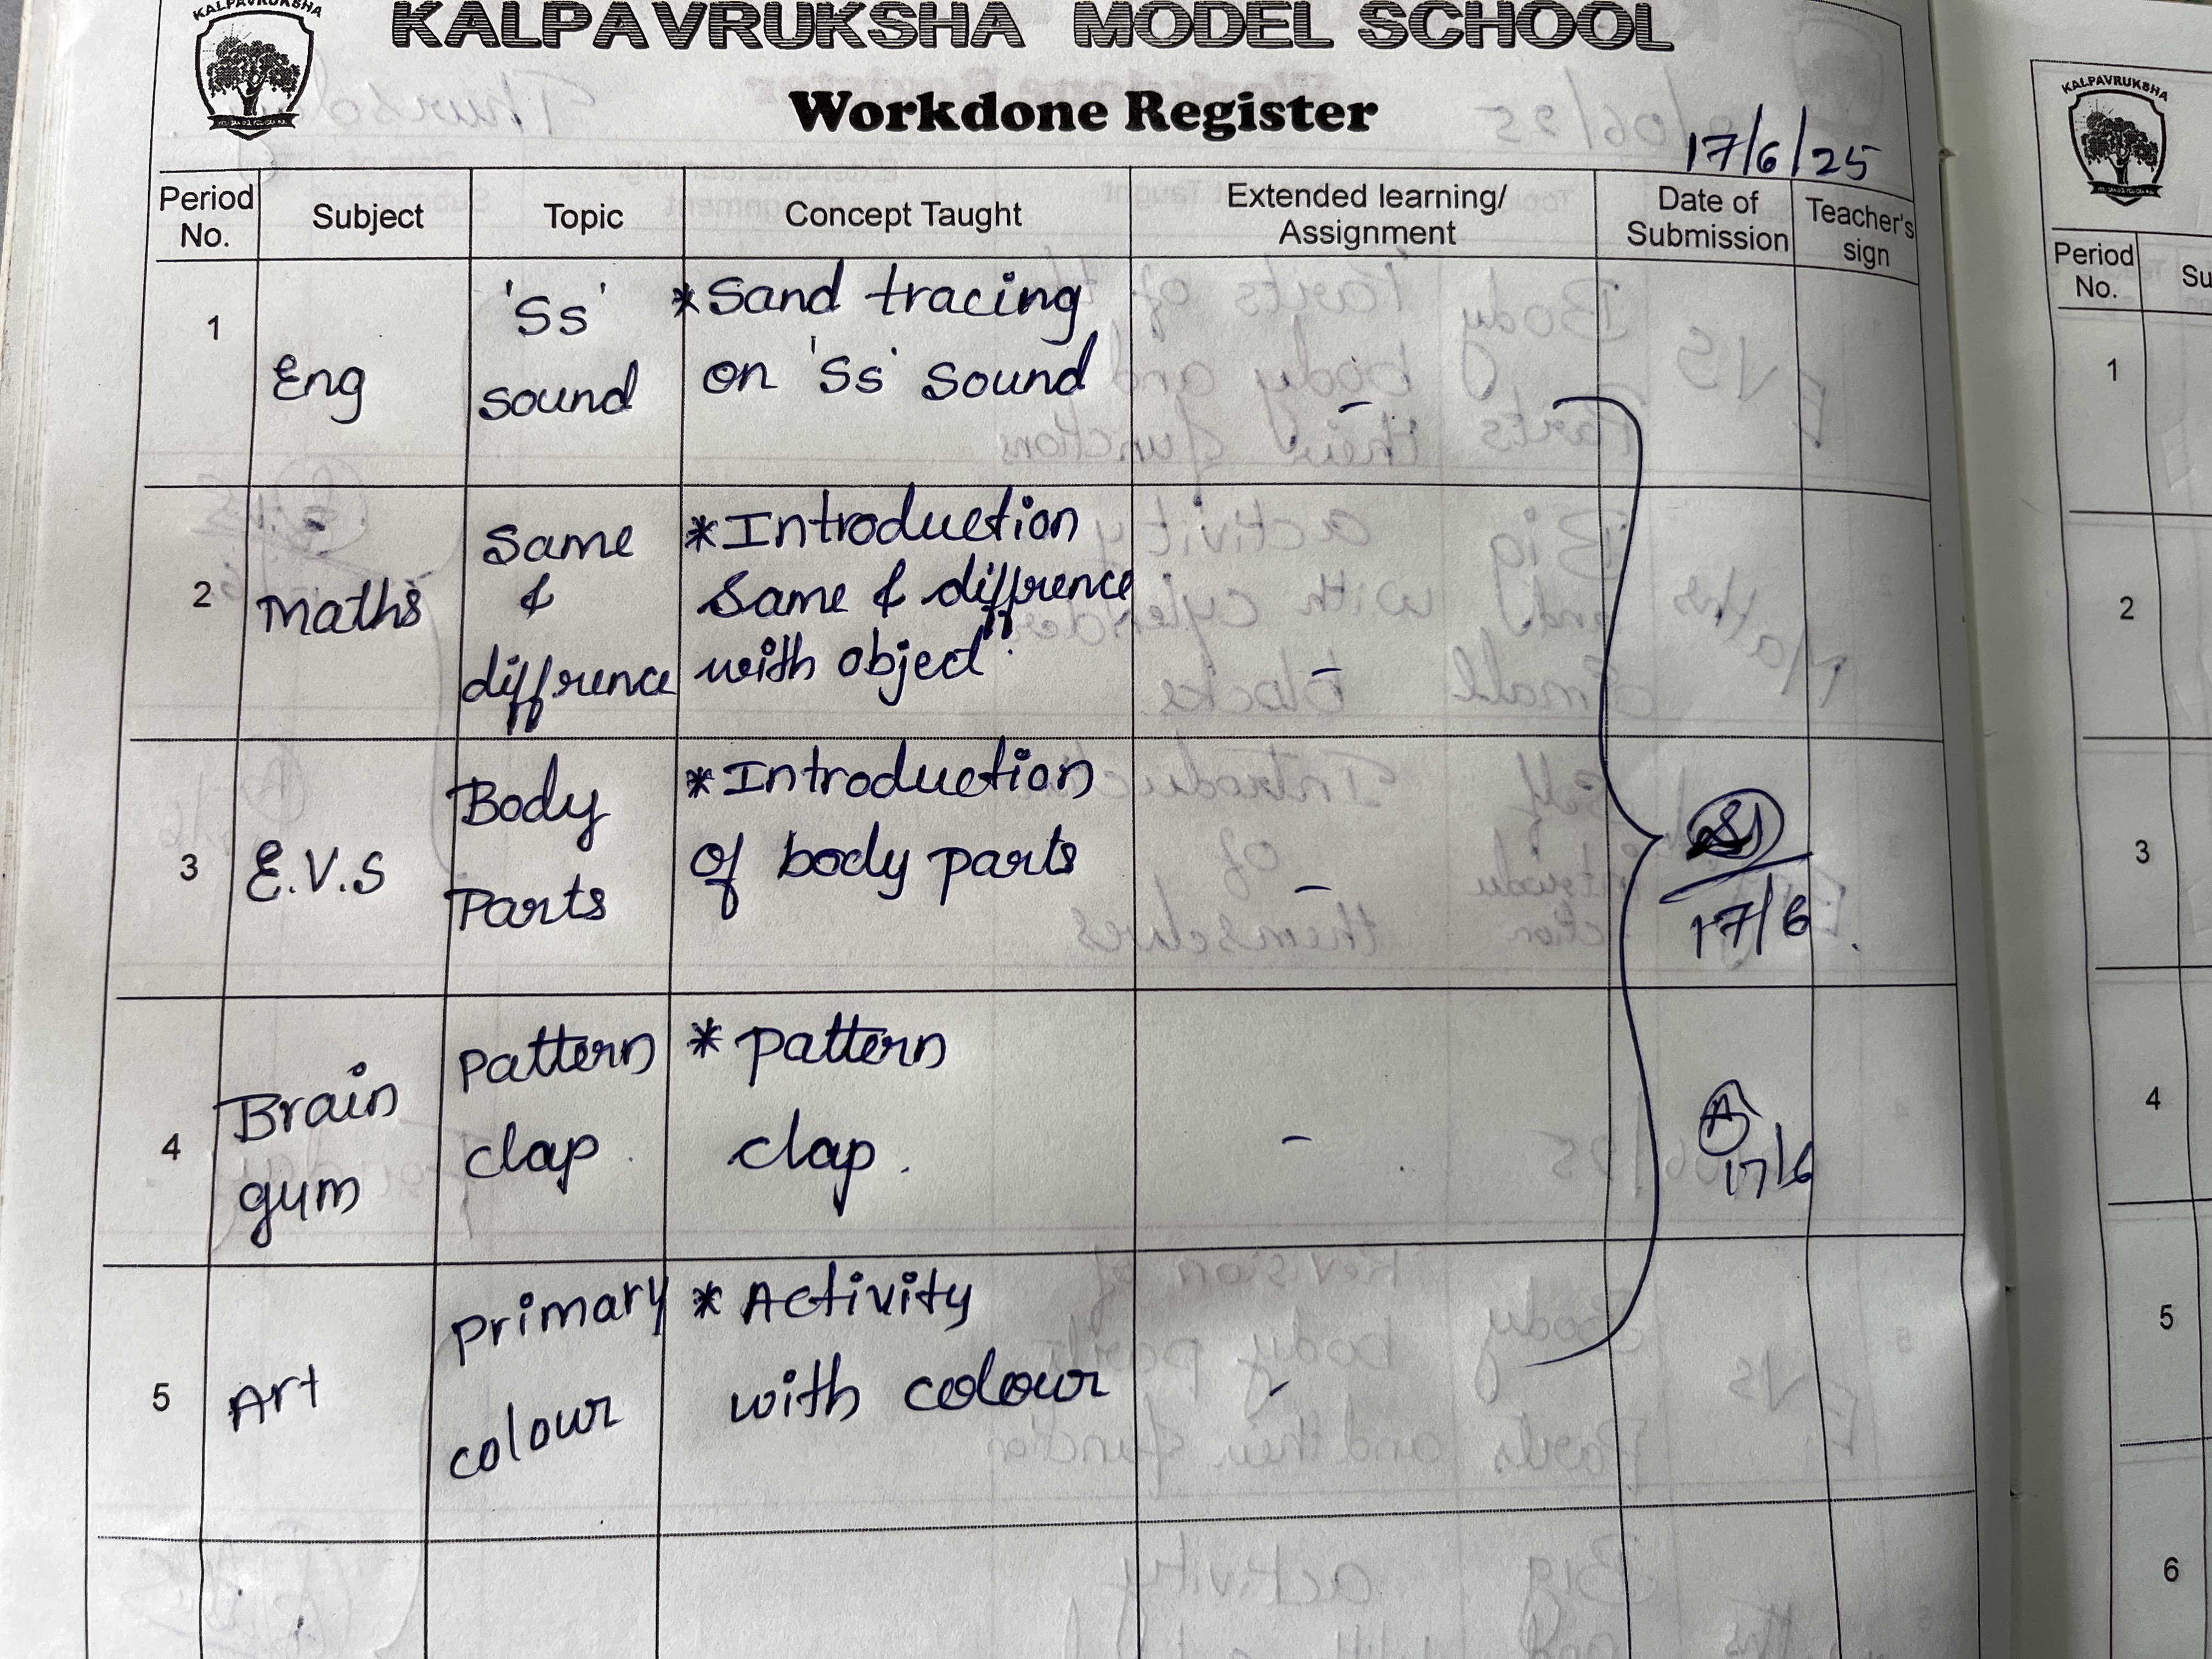 KALPAVRUKSHA
KALPAVRUKSHA MODEL SCHOOL
Workdone Register
17/6/25
Period No. Subject Topic Concept Taught Extended learning/ Assignment Date of Submission Teacher's sign
1 Eng 'Ss' sound *Sand tracing on 'Ss' sound -
2 Maths Same & diffrence *Introduction Same & diffrence with object -
3 E.V.S Body Parts *Introduction of body parts - 17/6
4 Brain gum Pattern clap. * Pattern clap. - 17/6
5 Art Primary colour * Activity with colour -
KALPAVRUKSHA
Period No. Su
1
2
3
4
5
6